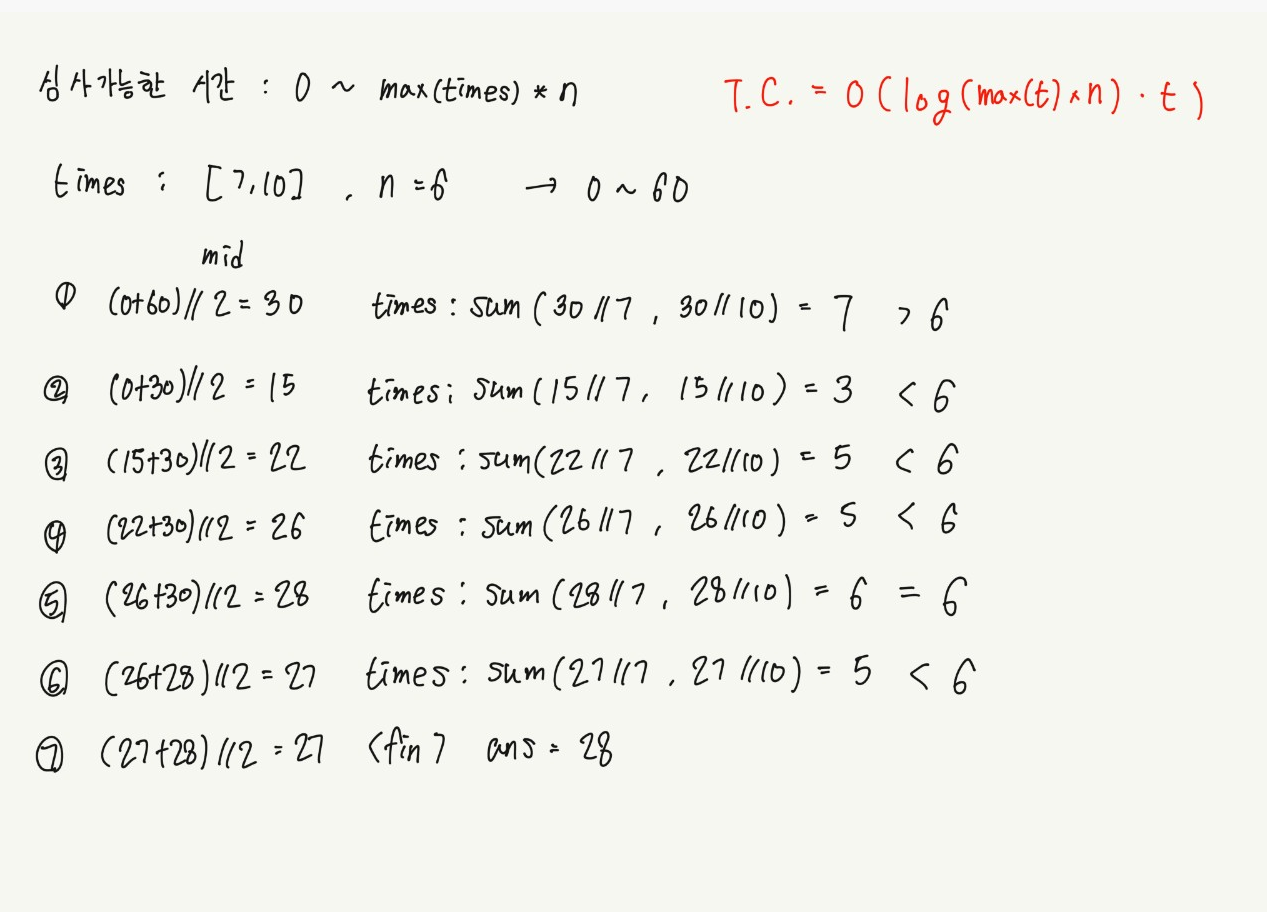 심사가능한 시간 : 0 ~ max(times) * n
T.C. = O(log(max(t)×n) · t)
times : [7,10] , n = 6 → 0 ~ 60
mid
① (0+60)//2 = 30 times : sum(30//7, 30//10) = 7 > 6
② (0+30)//2 = 15 times : sum(15//7, 15//10) = 3 < 6
③ (15+30)//2 = 22 times : sum(22//7, 22//10) = 5 < 6
④ (22+30)//2 = 26 times : sum(26//7, 26//10) = 5 < 6
⑤ (26+30)//2 = 28 times : sum(28//7, 28//10) = 6 = 6
⑥ (26+28)//2 = 27 times : sum(27//7, 27//10) = 5 < 6
⑦ (27+28)//2 = 27 <fin> ans = 28